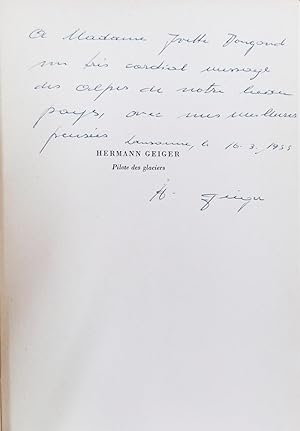 A Madame Yvette
un très cordial message
des alpes de notre beau
pays, avec mes meilleures
pensées Lausanne, le 16.3.1955
HERMANN GEIGER
Pilote des glaciers
H. Geiger